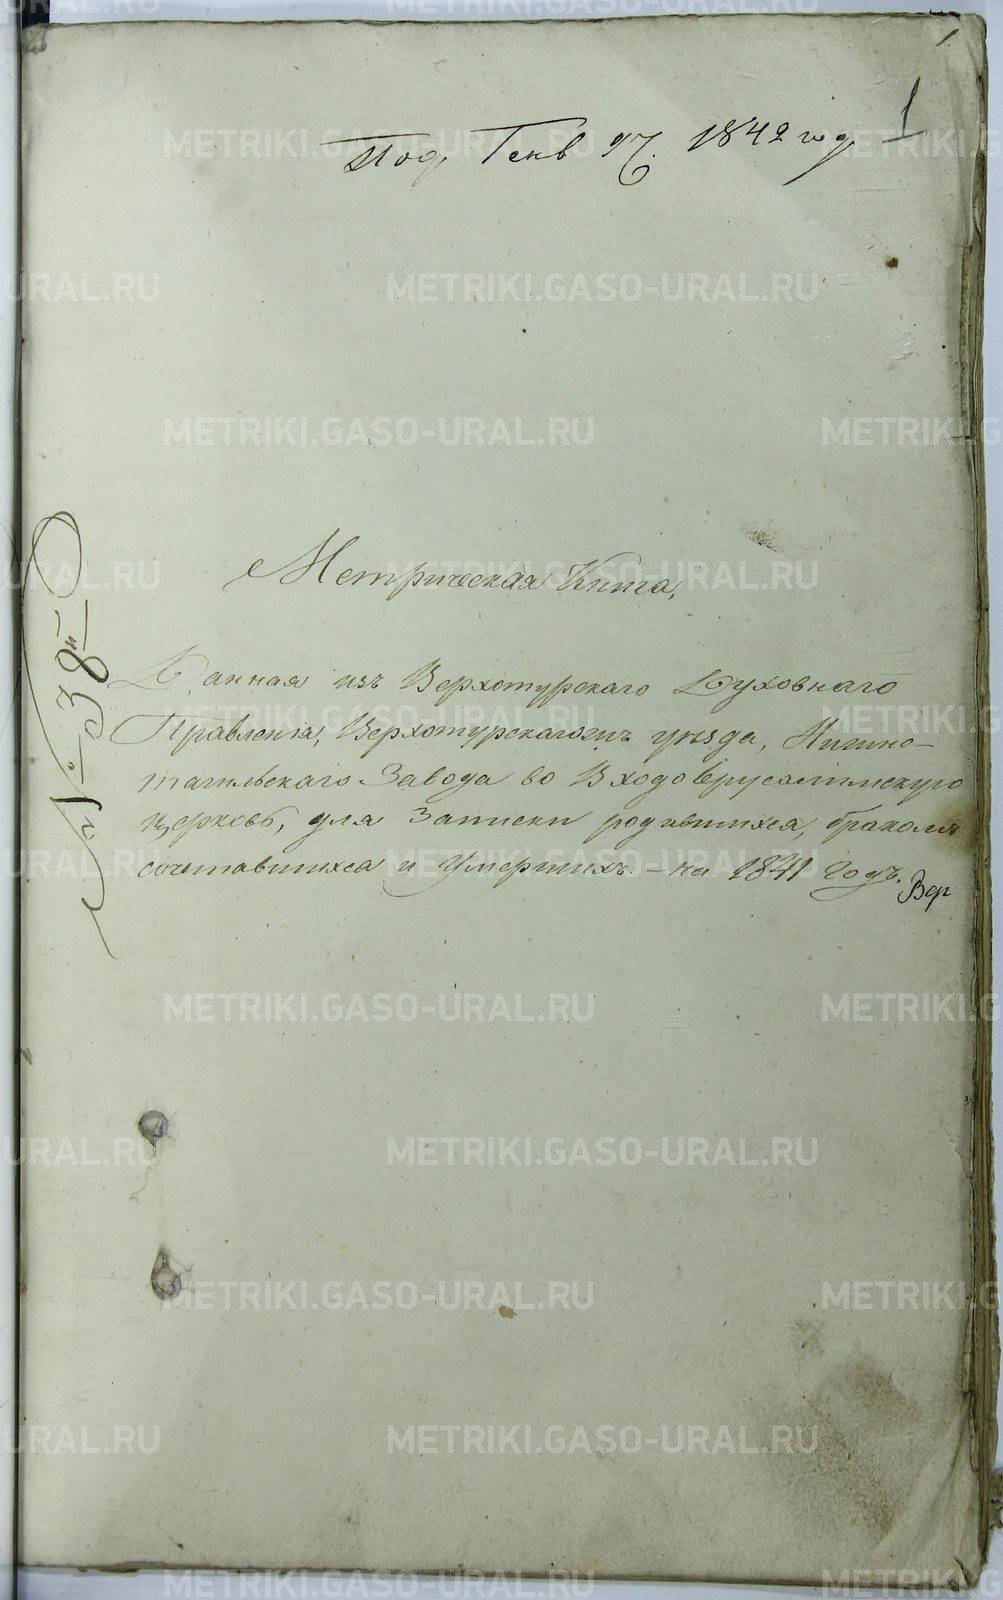 1
Под. Генв 27. 1842 год
Метрическая Книга,
№ 38й
Данная изъ Верхотурскаго Духовнаго
Правленія, Верхотурскагожъ уѣзда, Нижно-
тагильскаго Завода во Входоіерусалимскую
церковь, для Записки родившихся, бракомъ
сочетавшихся и Умершихъ. - на 1841 Годъ.
METRIKI.GASO-URAL.RU